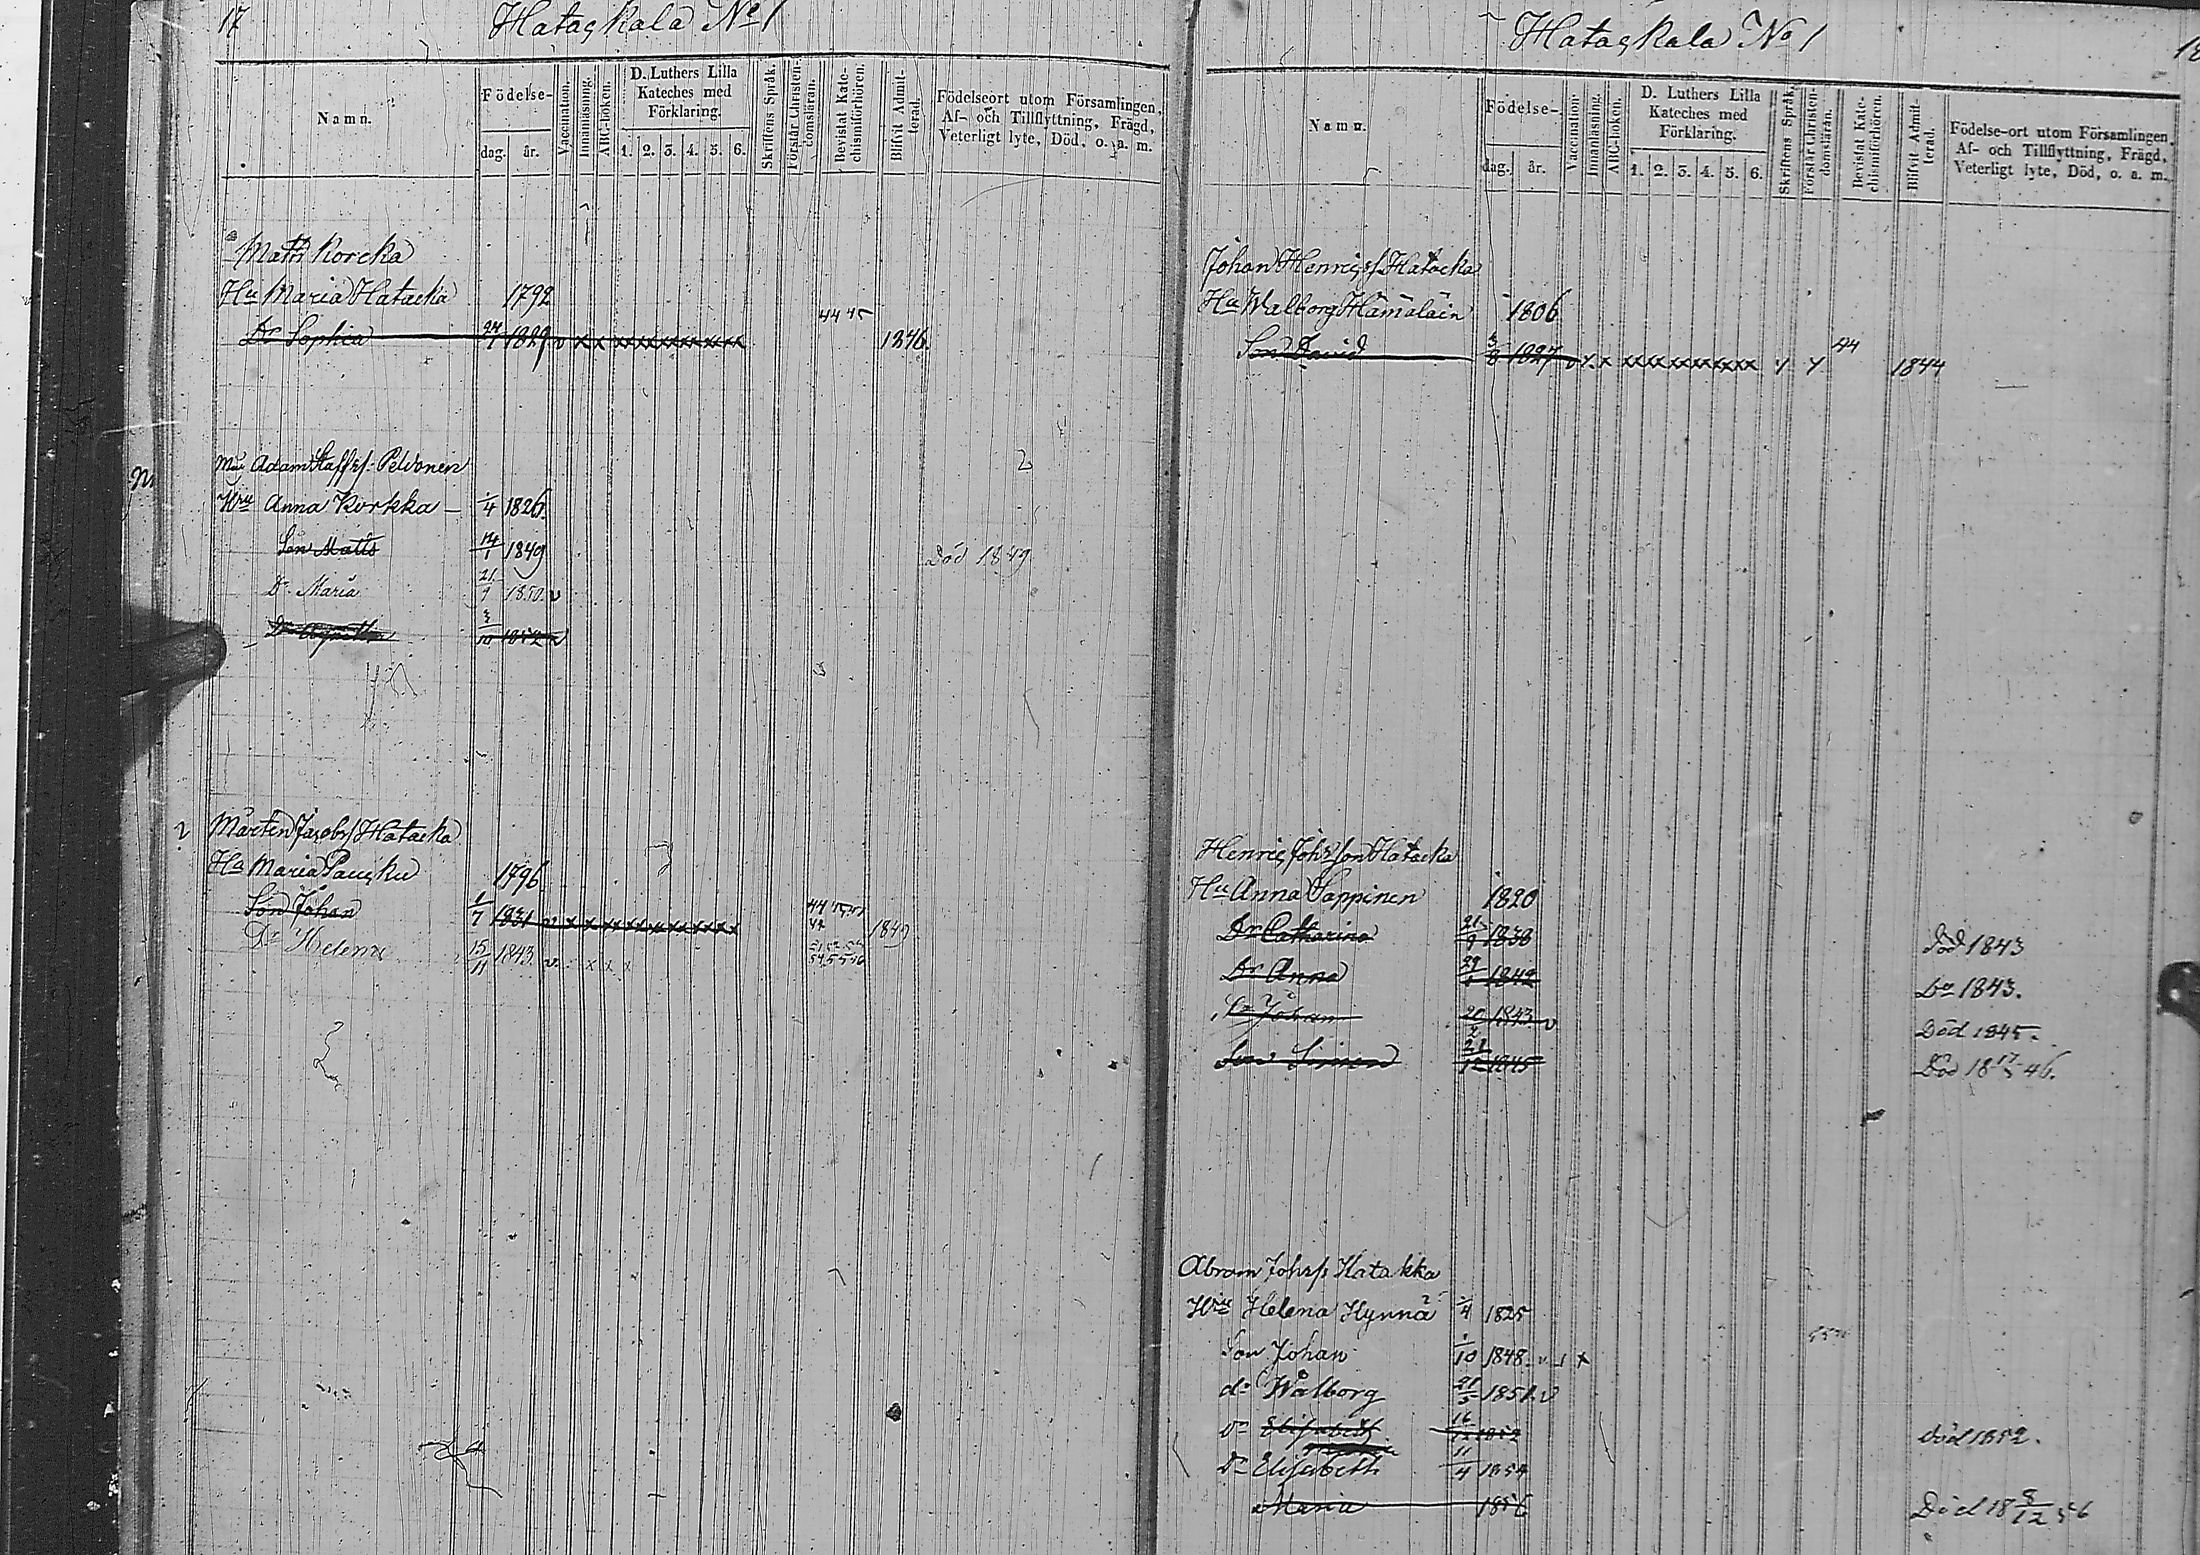 17
Hataçkala No 1
Namn.
Födelse-
dag. år.
Vaccination.
Innanläsning.
ABC-boken.
D. Luthers Lilla Kateches med Förklaring.
1. 2. 3. 4. 5. 6.
Skriftens Språk.
Förstår Christen-domsläran.
Bevistat Kate-chismiförhören.
Blifvit Admit-terad.
Födelseort utom Församlingen,
Af- och Tillflyttning, Frägd,
Veterligt lyte, Död, o. a. m.
Matts Korcka
Hu Maria Hatacka 1792
Dr Sophia 1829 v x x xxxxxxxxx 44 45 1846.
Adam Staffss. Pelvonen
Hru Anna Korkka 1/4 1826.
Son Matts 14/1 1849 Död 1849
Dr Maria 21/9 1850. v
3/10 1852 v
2 Mårten Jacobss Hatacka
Hu Maria Pauçku 1796
Son Johan 1/7 1831 v x x xxxxxxxxx 1849
Dr Helena 15/11 1843 v. x x x
Hataçkala No 1
18
Namn.
Födelse-
dag. år.
Vaccination.
Innanläsning.
ABC-boken.
D. Luthers Lilla Kateches med Förklaring.
1. 2. 3. 4. 5. 6.
Skriftens Språk.
Förstår Christen-domsläran.
Bevistat Kate-chismiförhören.
Blifvit Admit-terad.
Födelse-ort utom Församlingen,
Af- och Tillflyttning, Frägd,
Veterligt lyte, Död, o. a. m.
Johan Henriçss Hatacka
Hu Walborg Hämäläin 1806
Son David 3/8 1827 v x x xxxxxxxxx 44 1844
Henriç Johsson Hatacka
Hu Anna Pappinen 1820
Dr Catharina 1838 död 1843
Dr Anna 1842 Do 1843.
Johan 20/2 1843 v Död 1845.
Son Simon 21/12 1845 Död 18 17/5 46.
Abram Johss Hatakka
Hru Helena Hynnä 1/4 1825
Son Johan 1/10 1848 v x
dr Wålborg 21/5 1851. v
Dr Elisabeth 16/12 1852 död 1852.
Dr Elisabeth 11/4 1854
Maria 1856 Död 18 8/12 56